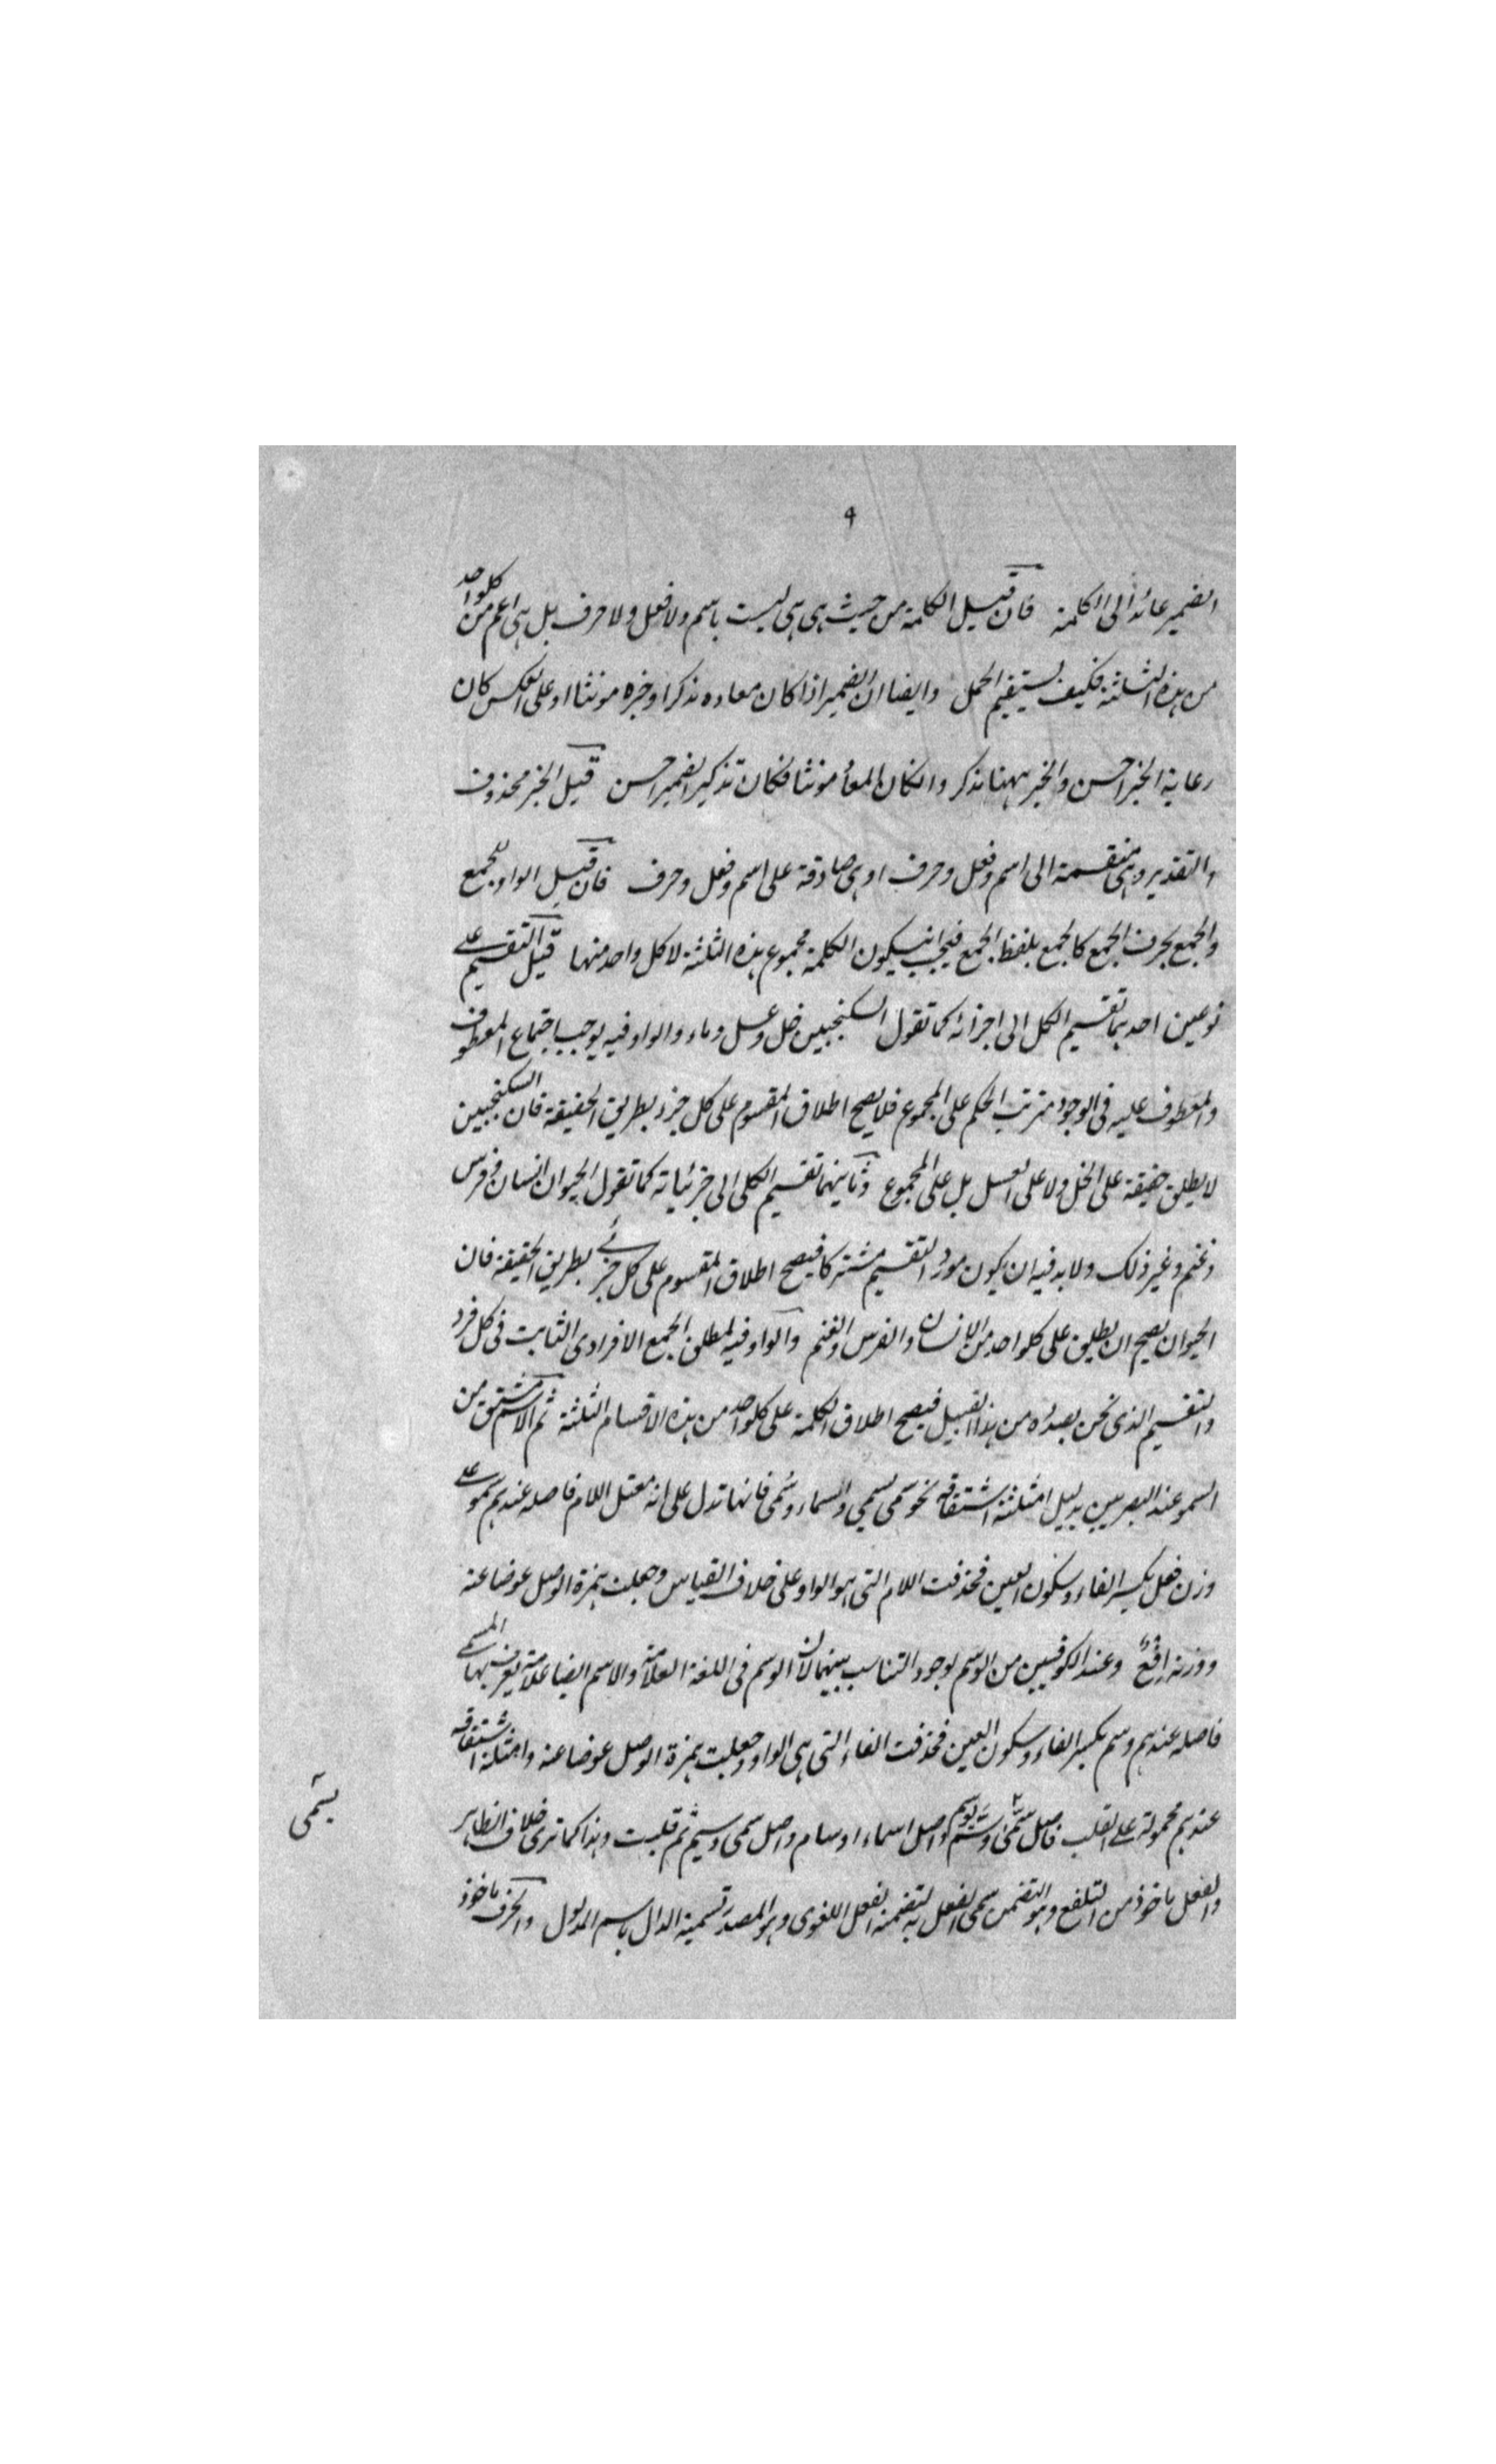 ٩
الضمیر عائدا الی الکلمة فان قیل الکلمة من حیث هی هی لیست باسم ولا فعل ولا حرف بل هی اعم من کلواحد
من هذه الثلثة فکیف یستقیم الحمل وایضا ان الضمیر اذا کان معاده مذکرا وخبره مونثا او علی العکس کان
رعایة الخبر احسن والخبر ههنا مذکر وانکان المعاد مونثا فکان تذکیر الضمیر احسن قیل الخبر محذوف
والتقدیر وهی منقسمة الی اسم وفعل وحرف او هی صادقة علی اسم وفعل وحرف فان قیل الواو للجمع
والجمع بحرف الجمع کالجمع بلفظ الجمع فیجب ان یکون الکلمة مجموع هذه الثلثة لا کل واحد منها قیل التقسیم علی
نوعین احدهما تقسیم الکل الی اجزائه کما تقول السکنجبین خل وعسل وماء والواو فیه یوجب اجتماع المعطوف
والمعطوف علیه فی الوجود مترتب الحکم علی المجموع فلا یصح اطلاق المقسوم علی کل جزء بطریق الحقیقة فان السکنجبین
لا یطلق حقیقة علی الخل ولا علی العسل بل علی المجموع وثانیهما تقسیم الکلی الی جزئیاته کما تقول الحیوان انسان وفرس
وغنم وغیر ذلک ولابد فیه ان یکون مورد التقسیم مشترکا فیصح اطلاق المقسوم علی کل جزئی بطریق الحقیقة فان
الحیوان یصح ان یطلق علی کلواحد من الانسان والفرس والغنم والواو فیه لمطلق الجمع الافرادی الثابت فی کل فرد
والتقسیم الذی نحن بصدده من هذا القبیل فیصح اطلاق الکلمة علی کلواحد من هذه الاقسام الثلثة ثم الاسم مشتق من
السمو عند البصریین بدلیل امثلثة اشتقاقه نحو سمی یسمی واسماء وسُمی فانها تدل علی انه معتل اللام فاصله عندهم سمو علی
وزن فعل بکسر الفاء وسکون العین فحذفت اللام التی هو الواو علی خلاف القیاس وجعلت همزة الوصل عوضا عنه
ووزنه اِفعٌ وعند الکوفیین من الوسم لوجود التناسب بینهما لان الوسم فی اللغة العلامة والاسم ایضا علامة یعرف بها المسمی
فاصله عندهم وسم بکسر الفاء وسکون العین فحذفت الفاء التی هی الواو وجعلت همزة الوصل عوضا عنه وامثلة اشتقاقه
عندهم محمولة علی القلب فاصل سمّی وسّم یوسم واصل اسماء اوسام واصل سمی وسیم ثم قلبت وهذا کما تری خلاف الظاهر
یسمّی
والفعل ماخوذ من التلفع وهو التضمن سمی الفعل به لتضمنه الفعل اللغوی وهو المصدر تسمیة الدال باسم المدلول والحرف ماخوذ